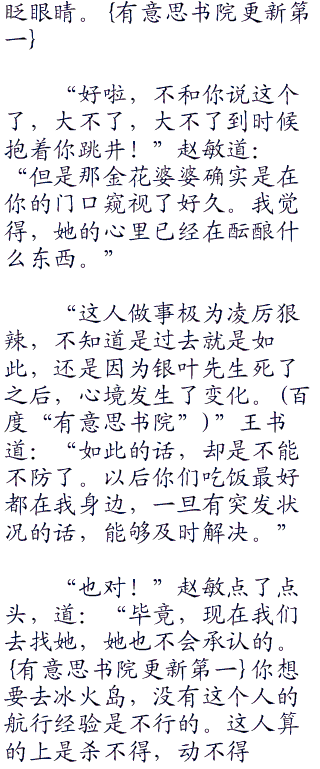 眨眼睛。{有意思书院更新第
一}
“好啦，不和你说这个
了，大不了，大不了到时候
抱着你跳井！”赵敏道：
“但是那金花婆婆确实是在
你的门口窥视了好久。我觉
得，她的心里已经在酝酿什
么东西。”
“这人做事极为凌厉狠
辣，不知道是过去就是如
此，还是因为银叶先生死了
之后，心境发生了变化。(百
度“有意思书院”)”王书
道：“如此的话，却是不能
不防了。以后你们吃饭最好
都在我身边，一旦有突发状
况的话，能够及时解决。”
“也对！”赵敏点了点
头，道：“毕竟，现在我们
去找她，她也不会承认的。
{有意思书院更新第一}你想
要去冰火岛，没有这个人的
航行经验是不行的。这人算
的上是杀不得，动不得